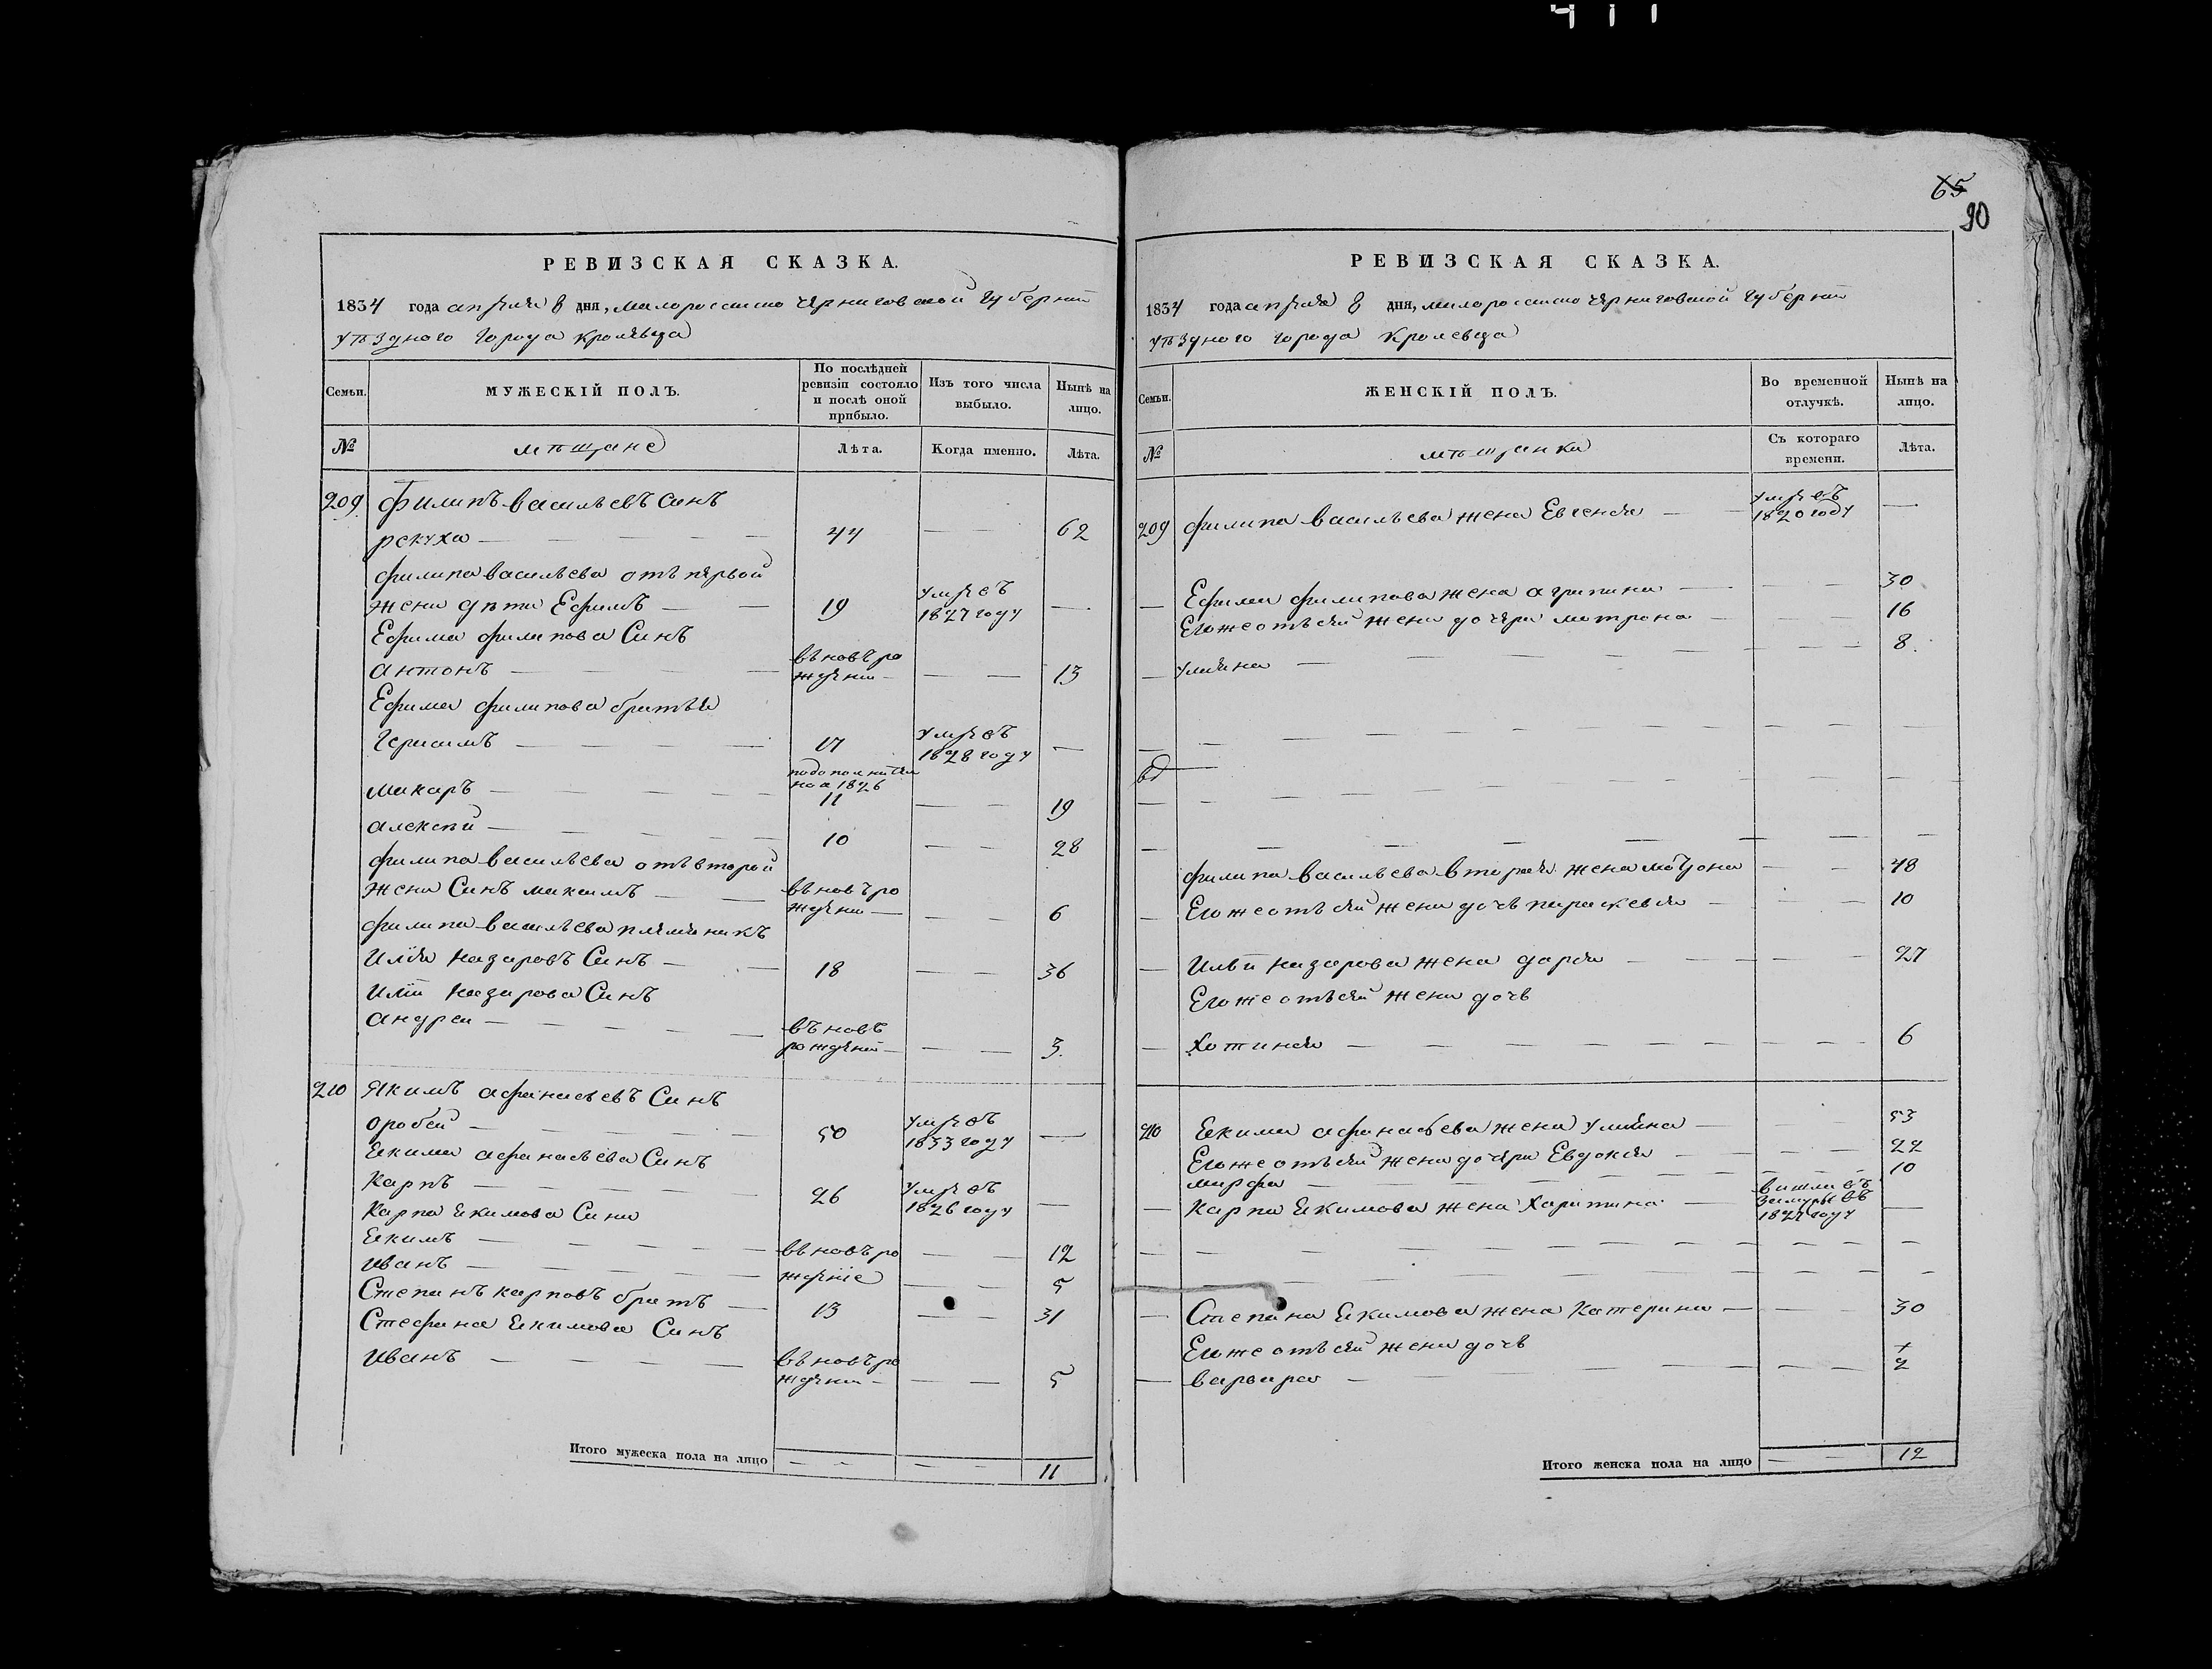 411
65
90
РЕВИЗСКАЯ СКАЗКА.
1834 года апреля 8 дня, малороссийско черниговской губернии
уѣздного города кролевца
Семьи. МУЖЕСКІЙ ПОЛЪ. По послѣдней ревизіи состояло и послѣ оной прибыло. Изъ того числа выбыло. Нынѣ на лицо.
№ мѣщане Лѣта. Когда именно. Лѣта.
209 Филипъ васильевъ синъ
рекуха — 44 — 62
филипа васильева отъ первой
жени дѣти Ефимъ — 19 умре въ 1827 году —
Ефима филипова Синъ
антонъ — въновъ рождении — — 13
Ефима филипова братья
Герасимъ — 17 умре въ 1828 году —
макаръ — подополнителной 1826 11 — — 19
алексѣй — 10 — — 28
филипа васильева отъ второй
жени Синъ максимъ — въновъ рождении — — 6
филипа васильева племяникъ
Илья назаровъ Синъ — 18 — — 36
Илїи назарова Синъ
андреи — въновъ рождений — — 3.
210 Якимъ афанасьевъ Синъ
оробей — 50 умре въ 1833 году —
Якима афанасьева Синъ
Карпъ — 26 умре въ 1826 году —
Карпа Якимова Сини
Якимъ — въновъ ро — — 12
иванъ — ждение — — 5
Степанъ карповъ братъ — 13 — — 31
Стефана Якимова Синъ
иванъ — въновъ рождении — — 5
Итого мужеска пола на лицо — — — — 11
РЕВИЗСКАЯ СКАЗКА.
1834 года апреля 8 дня, малороссийско черниговской губернии
уѣздного города Кролевца
Семьи. ЖЕНСКІЙ ПОЛЪ. Во временной отлучкѣ. Нынѣ на лицо.
№ мѣщанки Съ котораго времени. Лѣта.
209 филипа васильева жена Евгения — умре въ 1820 году —
— Ефима филипова жена агрипина — — — 30
Егожеотъсей жени дочери мотрона — — — 16
— улияна — — — 8.
филипа васильева вторая жена мотрона — — 48
— Егожеотъсей жени дочь параскевия — — — 10
— Ильи назарова жена дария — — — 27
Егожеотъсей жени дочь
— Хотиния — — — 6
210 Якима афанасьева жена улияна — — — 53
Егожеотъсей жени дочери Евдокия — — — 22
марфа — — — 10
— Карпа Якимова жена Харитина — вишла въ замужъ въ 1827 году —
— Степана Якимова жена Катерина — — — 30
Егожеотъсей жени дочь
— варвара — — — 2
Итого женска пола на лицо — — 12